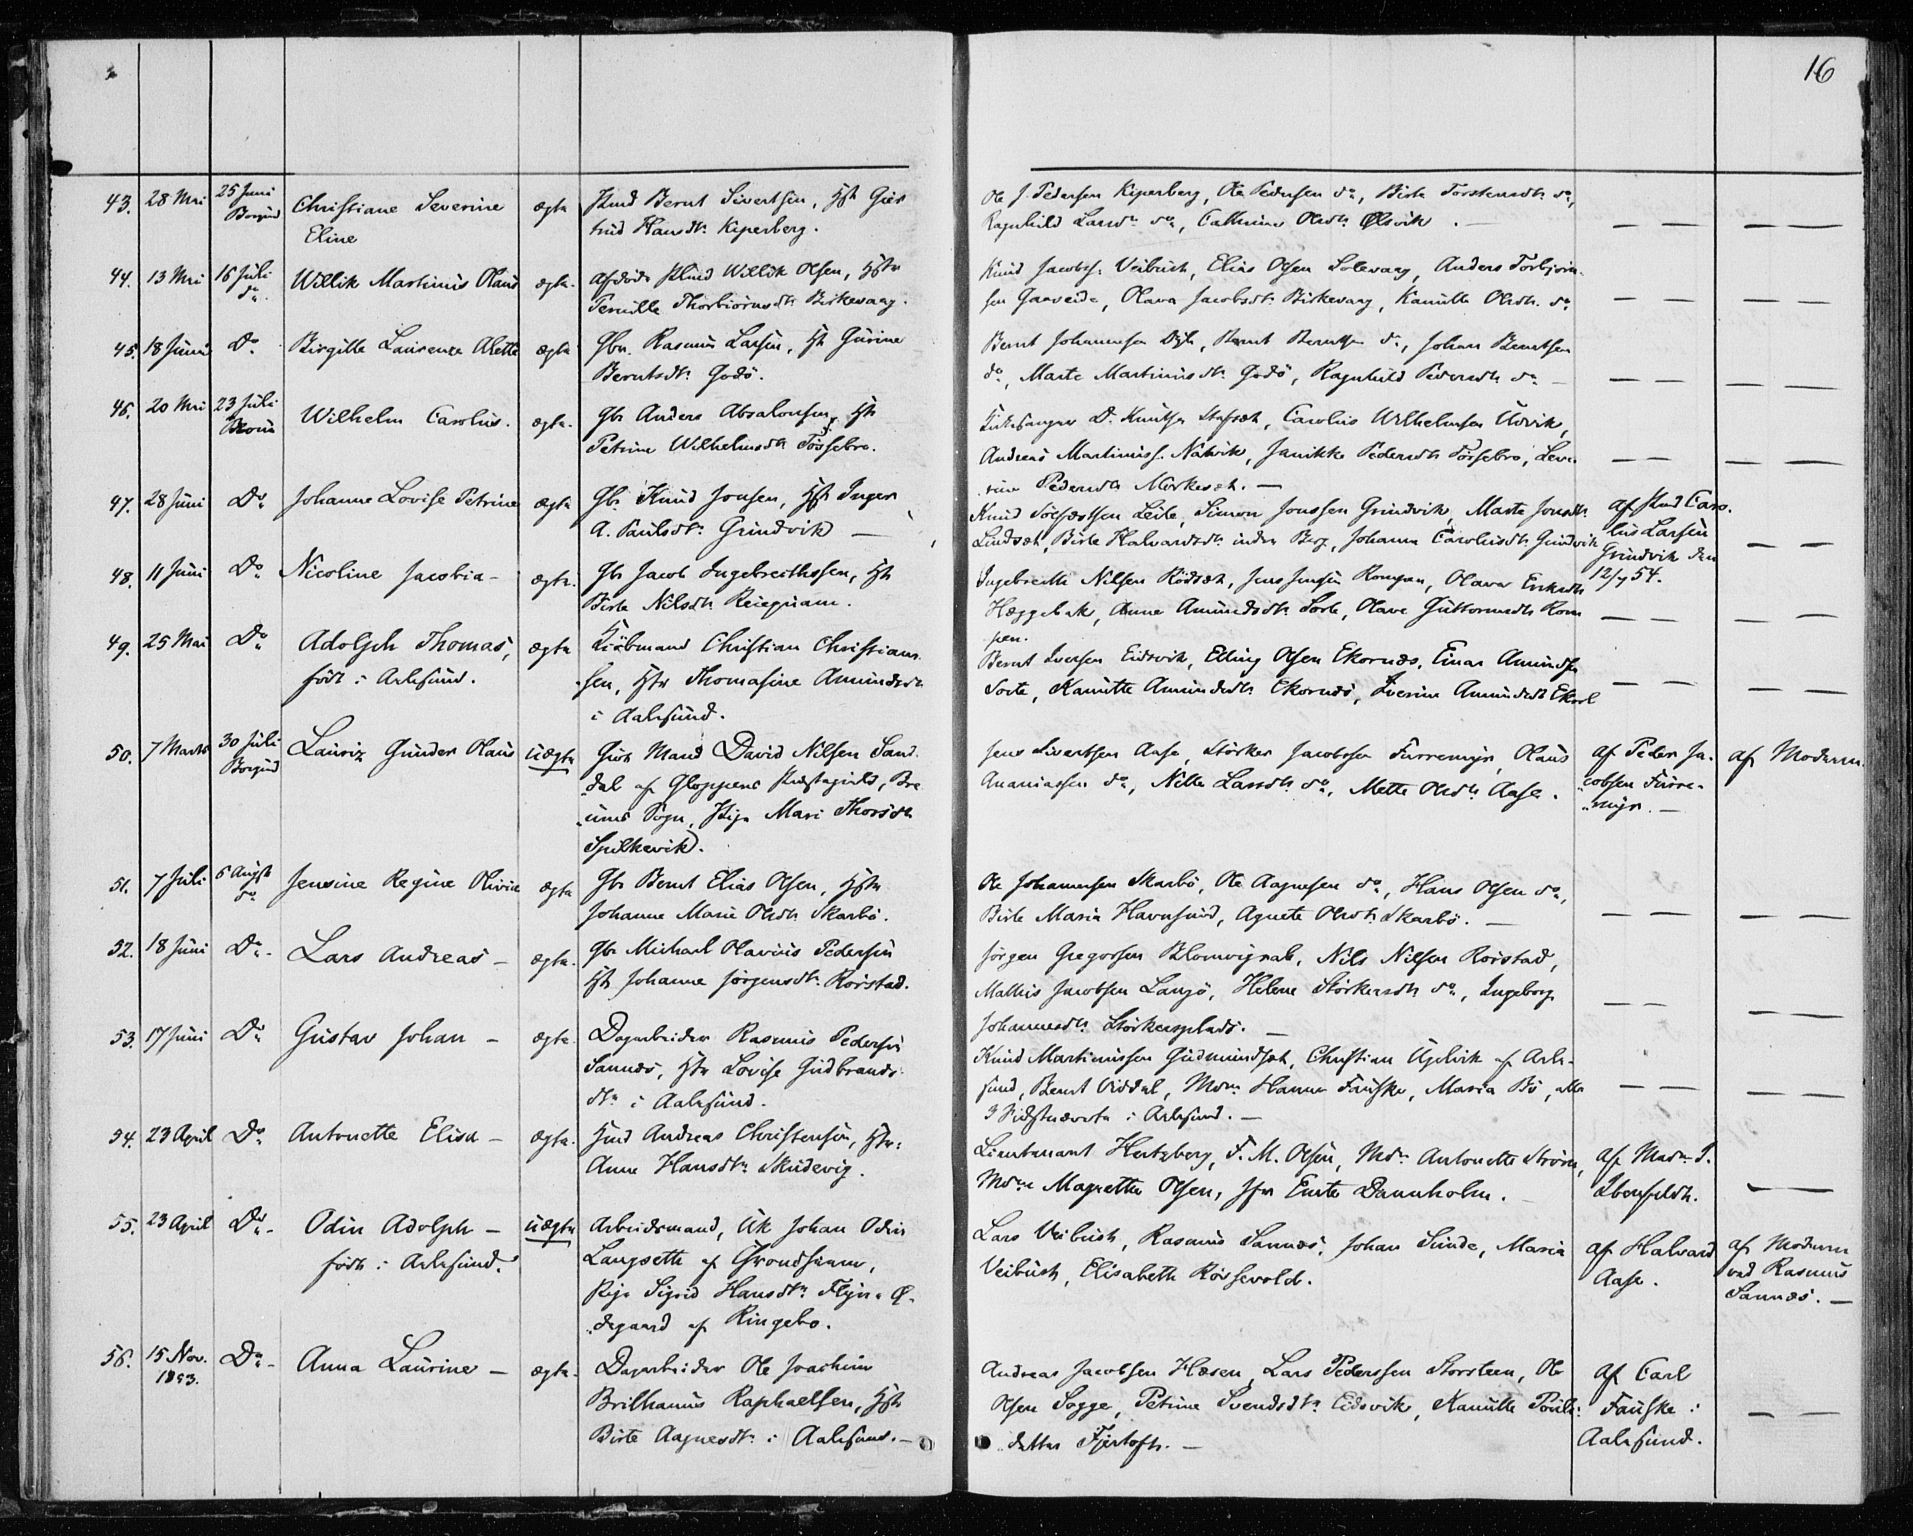 16
43. 28 Mai 25 Juni Borgund Christiane Severine Eline ægte Hmd Bernt Sivertsen, Hst Giertrud Hansdtr Kiperberg. Ole J. Pedersen Kiperberg, Ole Pedersen do, Birte Torstensdtr do, Ragnhild Larsdtr do, Cathrine Olsdtr Ølsvik. — — — —
44. 13 Mai 16 Juli do Willik Martinus Olaus ægte. Afdøde Hmd Willik Olsen, Hstr Pernille Thorbiørnsdtr Birkevaag. Knud Jacobs. Veibust, Elias Olsen Solevaag, Anders Torbjørnsen Gaaseide, Olava Jacobsdtr Birkevaag, Kanutte Olsdtr do — — — —
45. 18 Juni Do Birgitte Laurenze Alette ægte Gbr. Rasmus Larsen, Hst Gurine Berntsdtr Godø. Bernt Johannesen Dyb, Bernt Berntsen do, Johan Berntsen do, Marte Martinusdtr Godø, Ragnhild Pedersdtr do — — — — —
46. 20 Mai 23 Juli Wilhelm Carolus. ægte. Gbr Anders Absalonsen, Hst Petrine Wilhelmsdtr Fossebro. Kirkesanger D. Knutsen Stafset, Carolus Wilhelmsen Udvik, Andreas Martinuss. Nakvik, Janikke Pedersdtr Fossebro, Severine Pedersdtr Mørkeset. — — — — —
47. 28 Juni Do Johanne Lovise Petrine ægte Gbr. Knud Jonsen, Hst Inger A. Paulsdtr Grindvik — Knud Leite, Simon Jonssen Grindvik, Marte Jonsdtr Lindset, Birte Halvardsdtr indre Berg, Johanne Carolusdtr Grindvik af Hmd Carolus Larsen Grindvik den 12/7 54. — —
48. 11 Juni Do Nicoline Jacobia — ægte. Gbr Jacob Ingebrethssen, Hst Birte Nilsdtr. Ingebreth Nilsen Rødset, Jens Jensen Rompen, Olava Eriksdtr Heggebak, Anne Amundsdtr Sorte, Olave Guttormsdtr Rompen. — — — —
49. 25 Mai Do Adolph Thomas, født i Aalesund. ægte Kiøbmand Christian Christiansen, Hstr Thomasine Amundsdtr i Aalesund. Bernt Iversen Eidsvik, Elling Olsen Ekornes, Einar Amundsen Sorte, Kanutte Amundsdtr Ekornes, Iverine Amundsdtr — — — —
50. 7 Marts 30 Juli Borgund Lauriz Gunder Olaus uægte Gift Mand David Nilsen Sandal af Gloppens Præstegield, Breums Sogn, Pige Mari Thorsdtr Spilkevik. Jens Sivertsen Aase, Størker Jacobssen Furremyr, Olaus Ananiassen do, Nille Larsdtr do, Mette Olsdtr Aase. af Peder Jacobsen Furremyr. — af Moderen.
51. 7 Juli 6 August do Jensine Regine Olivia ægte Gbr Bernt Elias Olsen, Hstr Johanne Marie Olsdtr Skarbø. Ole Johannesen Skarbø, Ole Aagnesen do, Hans Olsen do, Birte Maria Havnsund, Agnete Olsdtr Skarbø. — — — — —
52. 18 Juni Do Lars Andreas — ægte. Gbr Michael Olavius Pedersen Hst Johanne Jørgensdtr Rørstad. Jørgen Gregorsen Blomvignak, Nils Nilsen Rørstad, Mathis Jacobsen Langø, Helene Størkersdtr do, Ingeborg Johannesdtr Størkersplads. — — — — —
53. 17 Juni Do Gustav Johan — ægte. Dagarbeider Rasmus Pedersen Sannes, Hstr Lovise Gudbrandsdtr i Aalesund. Knud Martinussen Gudmundset, Christian Ugelvik af Aalesund, Bernt Osdal, Mdm Hanna Fauske, Maria Bø, alle 3 Sidstnævnte i Aalesund. — — — — —
54. 23 April Do Antonette Elisa — ægte. Hmd Andreas Christensen, Hstr. Anne Hansdtr Skudevig. Lieutenant Hertzberg, F. M. Olsen, Mdm Antonette Strøm, Mdme Magrethe Olsen, Jfr Emte Dannholm. af Madm I. Ibenfeldt. — —
55. 23 April Do Odin Adolph — født i Aalesund. uægte Arbeidsmand, Uk Johan Odin Langsette af Throndhjem, Pige Sigrid Hansdtr Flyn Ødegaard af Ringebo. Lars Veibust, Rasmus Sannes, Johan Sunde, Maria Veibust, Elisabeth Rørsevold. af Halvard Aase. af Moderen ved Rasmus Sannes. —
56. 15 Nov. 1853. Do Anna Laurine — ægte. Dagarbeider Ole Joachim Brilhanus Raphaelsen, Hst Birte Aagnesdtr i Aalesund. — Andreas Jacobsen Hesen, Lars Pederssen Storsteen, Ole Olsen Sogge, Petrine Svendsdtr Eidsvik, Kanutte Poulsdatter Fjørtoft. — af Carl Fauske i Aalesund. — —